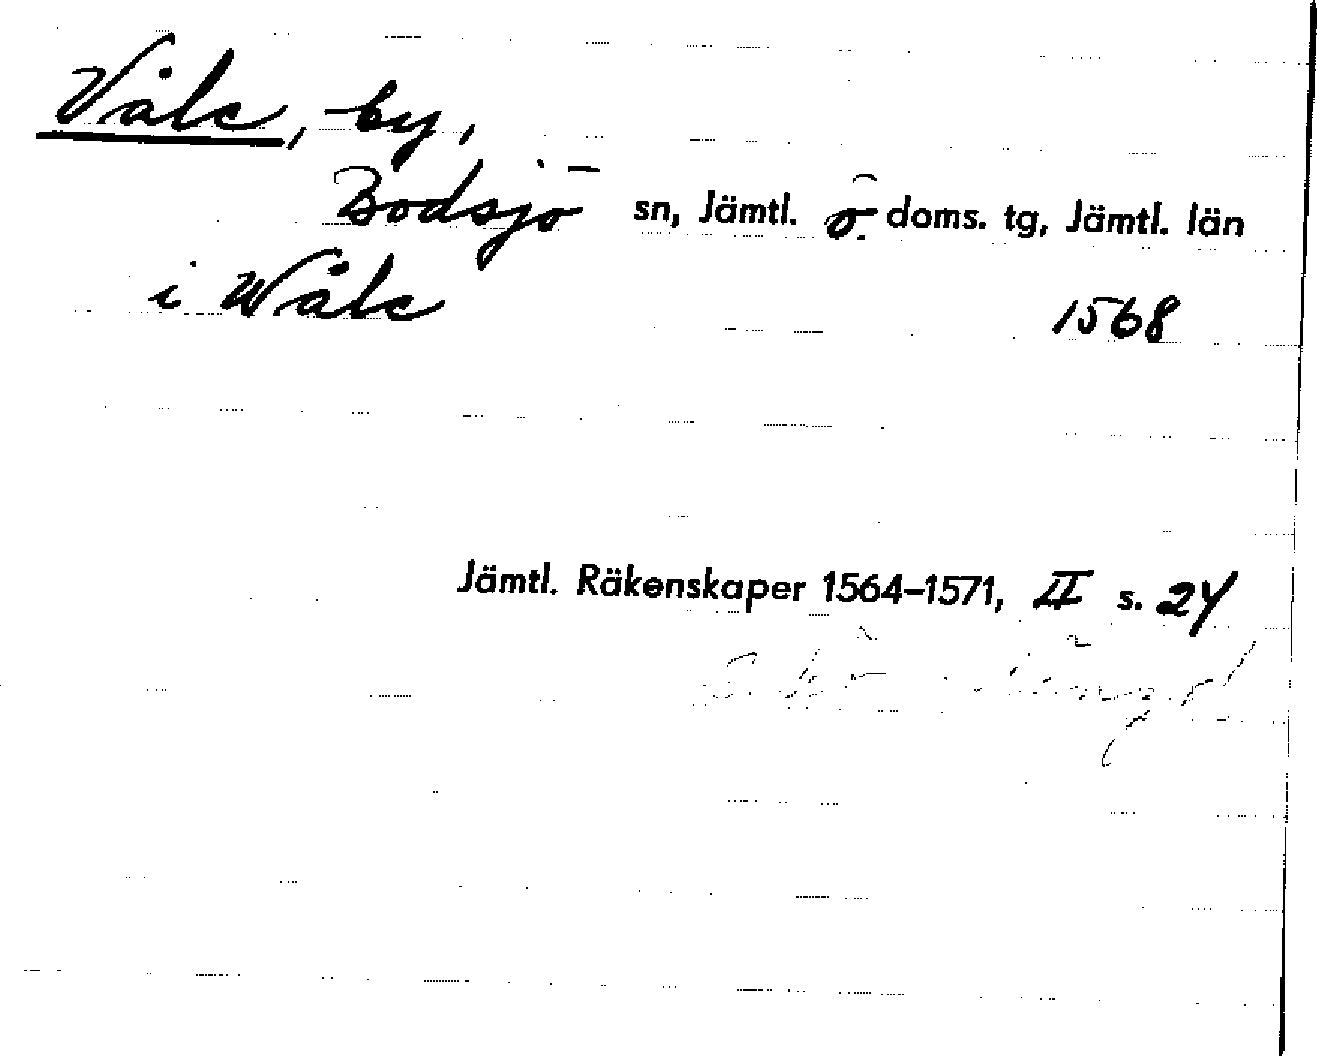 Våle, by,
Bodsjö sn, Jämtl. ö. doms. tg, Jämtl. län
i Wåle 1568
Jämtl. Räkenskaper 1564–1571, II s. 24